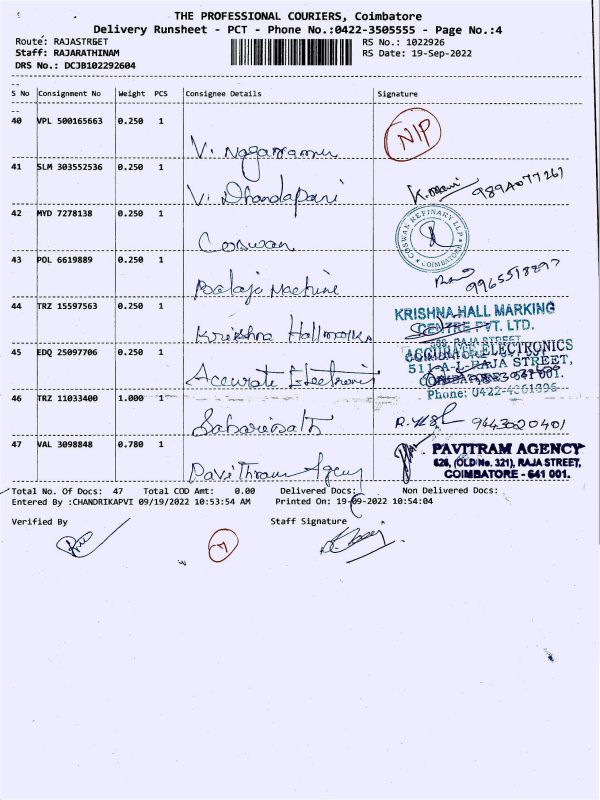 THE PROFESSIONAL COURIERS, Coimbatore
Delivery Runsheet - PCT - Phone No.:0422-3505555 - Page No.:4
Route: RAJASTREET RS No.: 1022926
Staff: RAJARATHINAM RS Date: 19-Sep-2022
DRS No.: DCJB102292604
S No Consignment No Weight PCS Consignee Details Signature
40 VPL 500165663 0.250 1 NIP
V. Nagarramu
41 SLM 303552536 0.250 1
V. Dhandapani K. Mani 9894077261
42 MYD 7278138 0.250 1 COSWAN REFINARY LLP
Coswan COIMBATORE
43 POL 6619889 0.250 1
Balaje Machine 9965518897
44 TRZ 15597563 0.250 1 KRISHNA HALL MARKING
CENTRE PVT. LTD.
Krishna Hallmark 388, RAJA STREET
45 EDQ 25097706 0.250 1 ACCURATE ELECTRONICS
511-A-1, RAJA STREET,
Accurate Electronis
46 TRZ 11033400 1.000 1 Phone: 0422-4361896
Sabarinath 9443020401
47 VAL 3098848 0.780 1 PAVITRAM AGENCY
626, (OLD No. 321), RAJA STREET,
Pavithram Agency COIMBATORE - 641 001.
Total No. Of Docs: 47 Total COD Amt: 0.00 Delivered Docs: Non Delivered Docs:
Entered By :CHANDRIKAPVI 09/19/2022 10:53:54 AM Printed On: 19-09-2022 10:54:04
Verified By Staff Signature